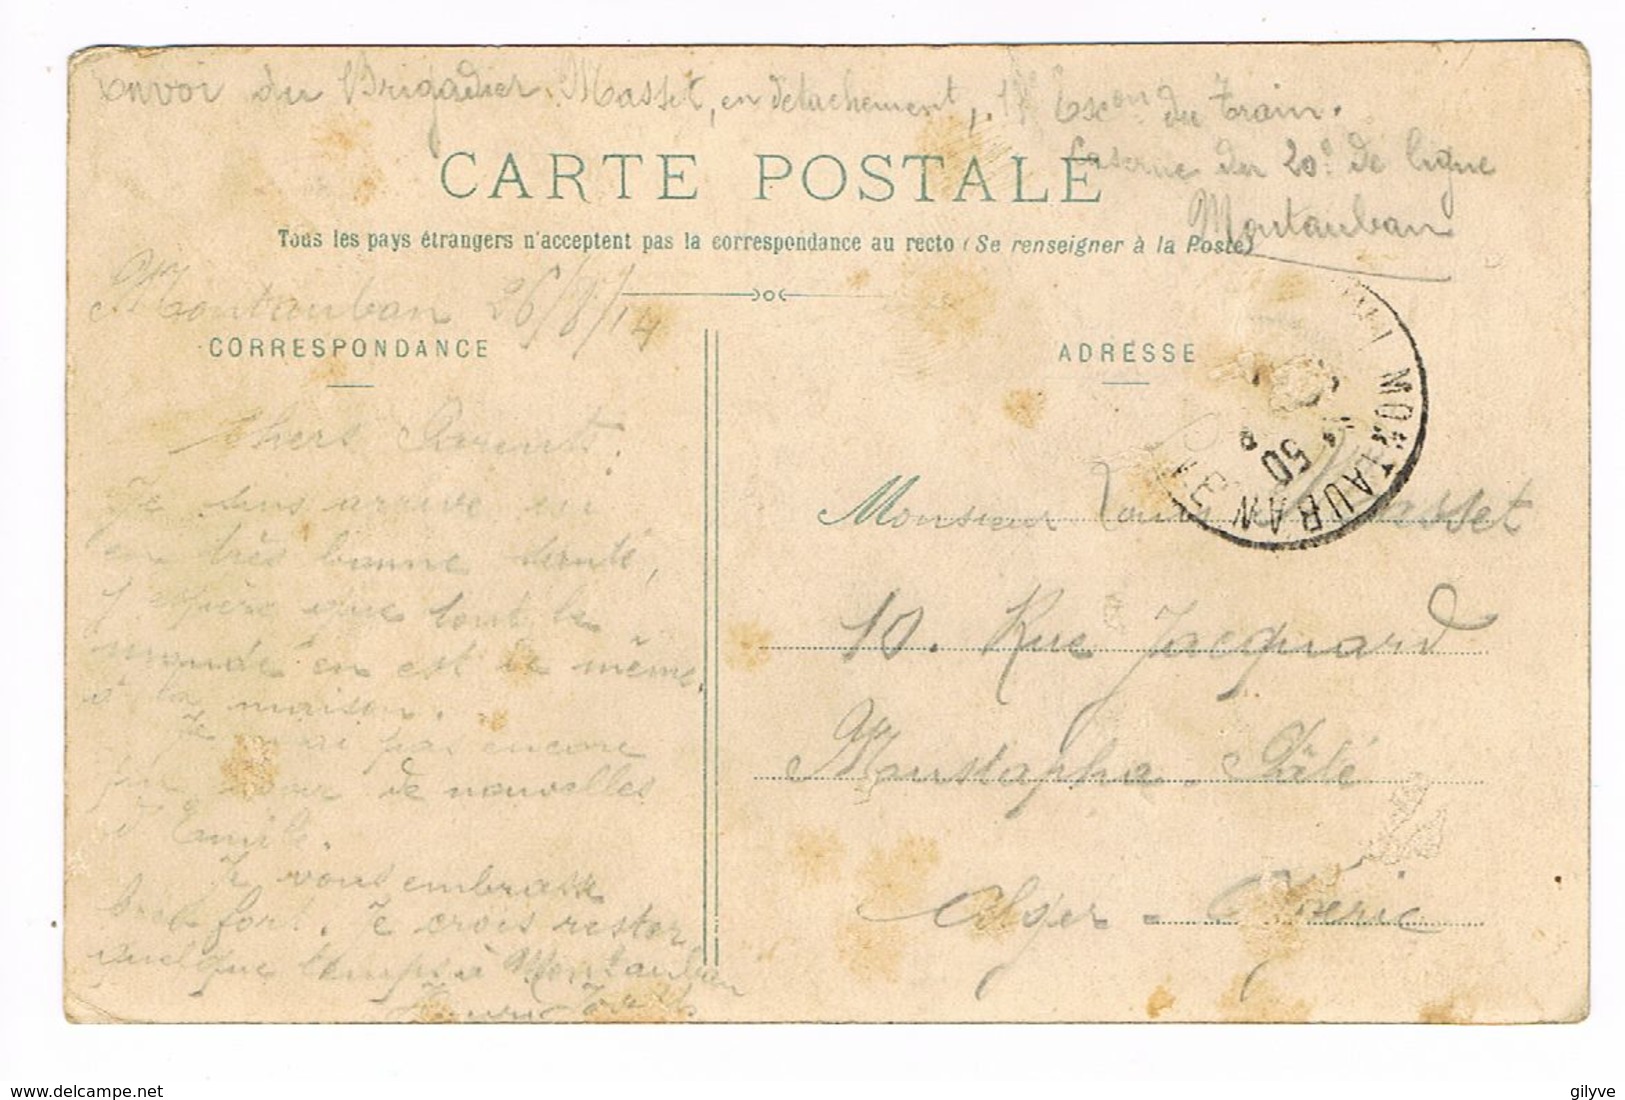 Envoi du Brigadier Masset, en détachement, 17e Escon du Train.
Caserne du 20e de ligne
Montauban
CARTE POSTALE
Tous les pays étrangers n'acceptent pas la correspondance au recto (Se renseigner à la Poste)
Montauban 26/8/14
CORRESPONDANCE
ADRESSE
MONTAUBAN
50
Chers Parents.
Je suis arrivé ici
en très bonne santé,
j'espère que tout le
monde en est de même
à la maison.
Je n'ai pas encore
de nouvelles
d'Emile.
Je vous embrasse
bien fort. Je crois rester
quelque temps à Montauban
Monsieur Louis Masset
10. Rue Jacquard
Mustapha. Pâté
Alger - Algérie
delcampe.net
gilyve